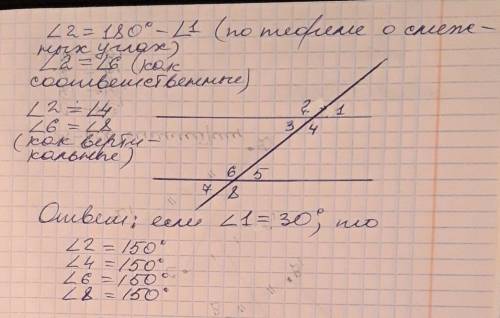 ∠2 = 180° - ∠1 (по теореме о смеж-
ных углах)
∠2 = ∠6 (как
соответственные)
∠2 = ∠4
∠6 = ∠8
(как верти-
кальные)
2 1
3 4
6 5
7 8
Ответ: если ∠1 = 30°, то
∠2 = 150°
∠4 = 150°
∠6 = 150°
∠8 = 150°